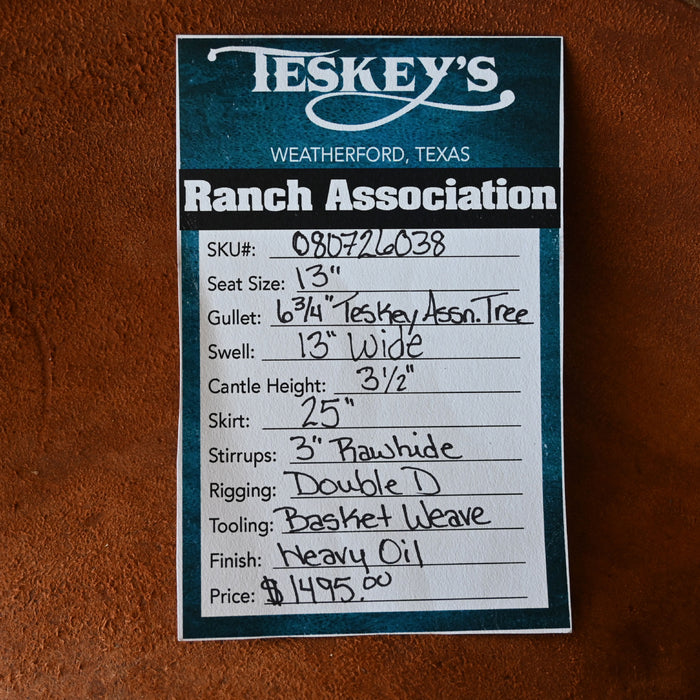 TESKEY'S
WEATHERFORD, TEXAS
Ranch Association
SKU#: 080726038
Seat Size: 13"
Gullet: 6 3/4" Teskey Assn. Tree
Swell: 13" Wide
Cantle Height: 3 1/2"
Skirt: 25"
Stirrups: 3" Rawhide
Rigging: Double D
Tooling: Basket Weave
Finish: Heavy Oil
Price: $1495.00